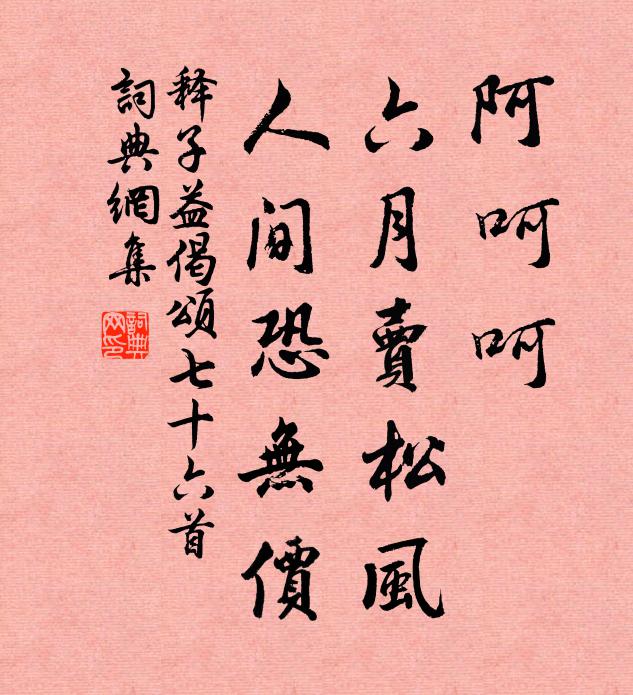 阿呵呵
六月賣松風
人间恐無價
释子益偈頌七十六首
詞典網集
詞典
网印